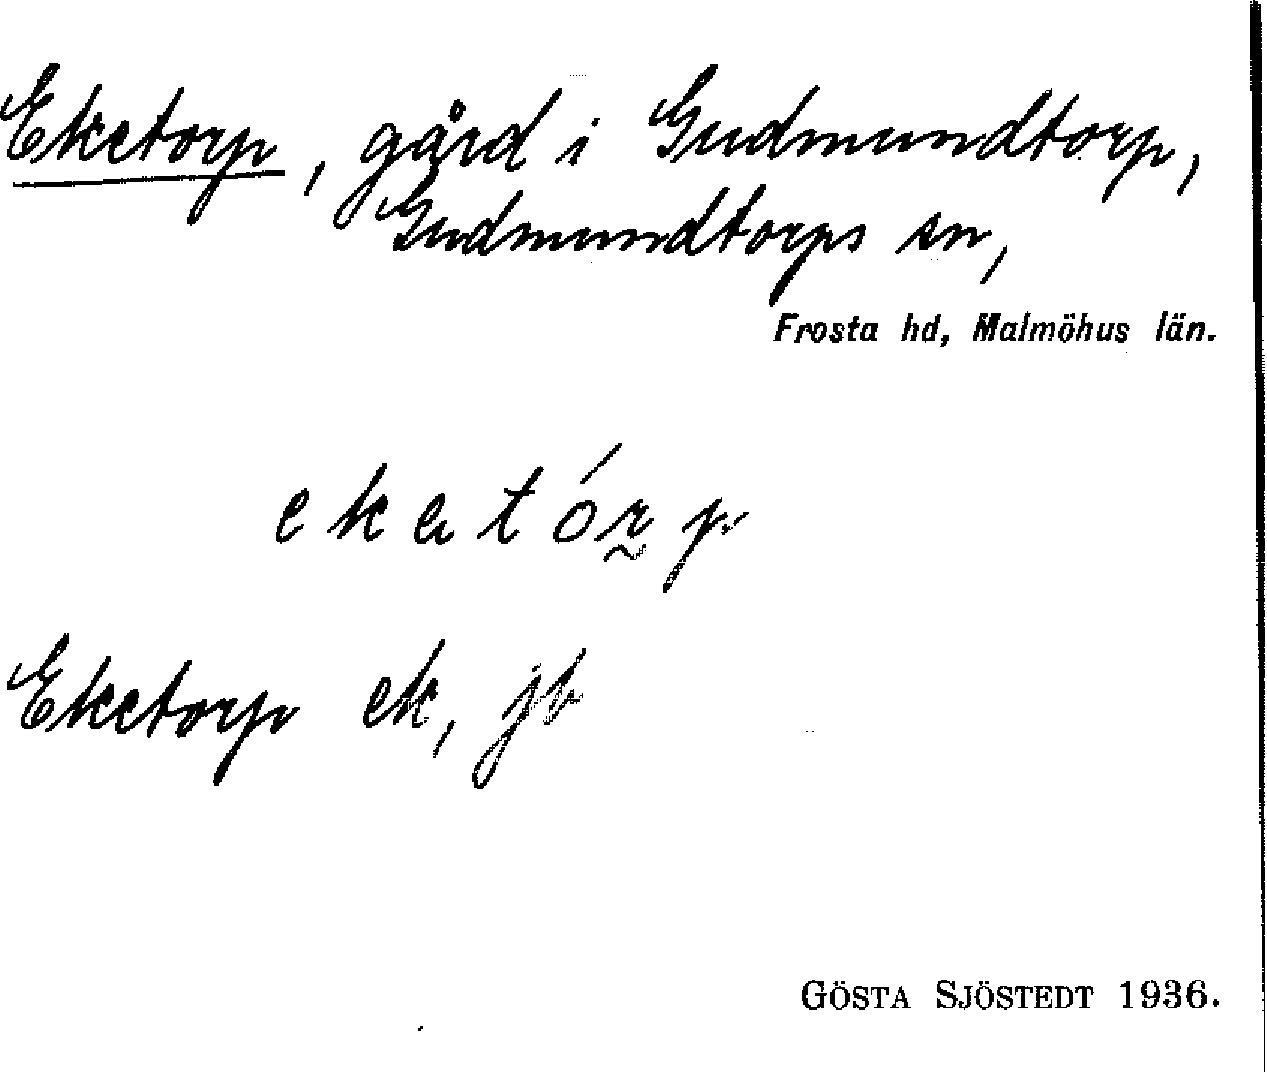 Eketorp, gård i Gudmundtorp,
Gudmundtorps sn,
Frosta hd, Malmöhus län.
ekatórp
Eketorp ek, jb
GÖSTA SJÖSTEDT 1936.